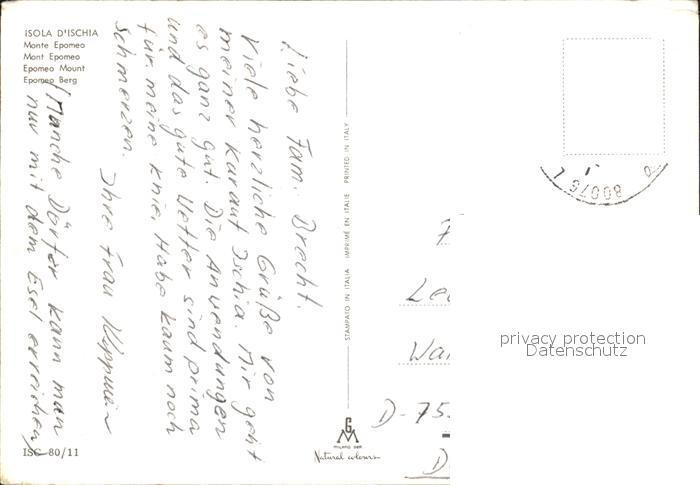 ISOLA D'ISCHIA
Monte Epomeo
Mont Epomeo
Epomeo Mount
Epomeo Berg
Liebe Fam. Brecht.
Viele herzliche Grüße von
meiner Kur auf Ischia. Mir geht
es ganz gut. Die Anwendungen
und das gute Wetter sind prima
für meine Knie. Habe kaum noch
schmerzen.
Ihre Frau
(Manche Dörfer kann man
nur mit dem Esel erreichen)
STAMPATO IN ITALIA IMPRIMÉ EN ITALIE PRINTED IN ITALY
80076
D-75
D
privacy protection
Datenschutz
MILANO
Natural colours
ISC 80/11